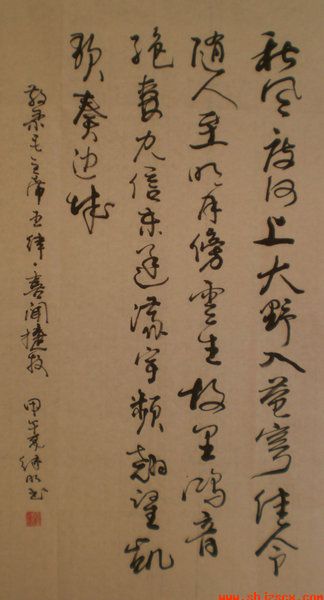 秋风度河上大野入苍穹佳令
随人至明月傍雲生故里鸿音
绝妻儿信未通满宇频翘望凯
歌奏边城
敬录毛主席五律·喜闻捷报 甲午 书
www.shjzscx.com